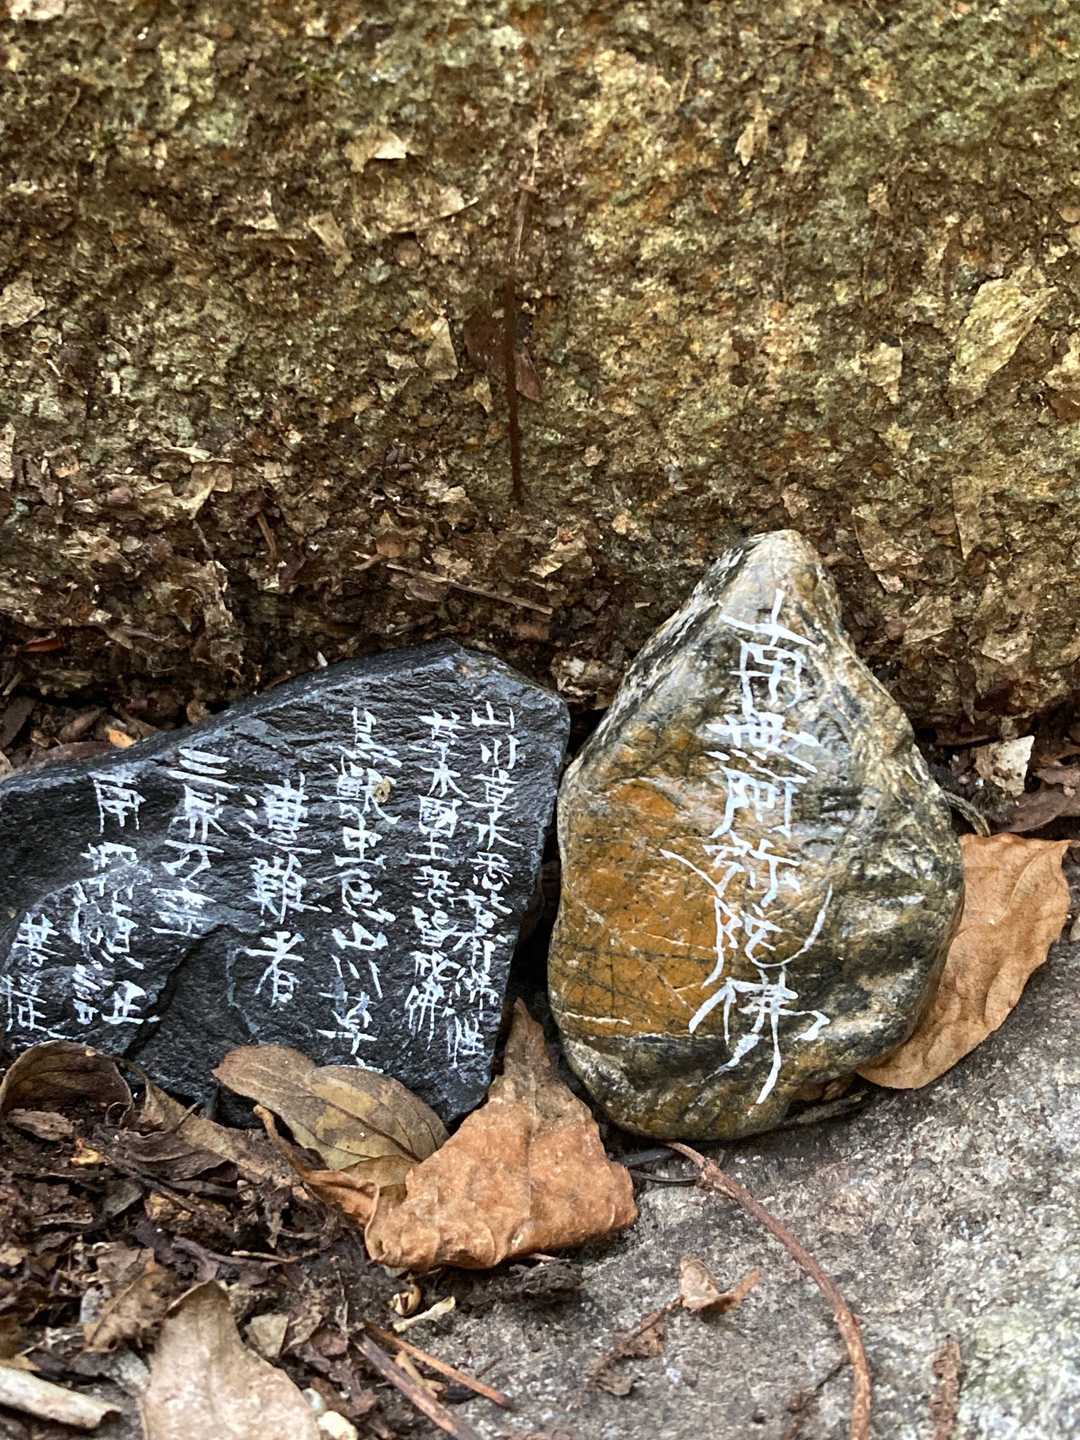 南無阿弥陀佛
山川草木悉皆有佛性
草木國土悉皆成佛
鳥獣虫魚山川草
遭難者
三界万霊
南
菩提